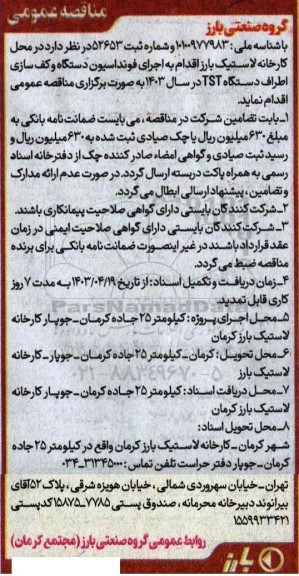 مناقصه عمومی
گروه صنعتی بارز
باشناسه ملی: ۱۰۱۰۰۹۷۷۹۸۳ وشماره ثبت ۵۲۶۵۳ در نظر دارد در محل
کارخانه لاستیک بارز اقدام به اجرای فونداسیون دستگاه و کف سازی
اطراف دستگاه TST در سال ۱۴۰۳ به صورت برگزاری مناقصه عمومی
اقدام نماید.
۱_بابت تضامین شرکت در مناقصه ، می بایست ضمانت نامه بانکی به
مبلغ ۶۳۰ میلیون ریال یا چک صیادی ثبت شده به ۶۳۰ میلیون ریال و
رسید ثبت صیادی و گواهی امضاء صادر کننده چک از دفترخانه اسناد
رسمی به همراه پاکت دربسته ارسال گردد. در صورت عدم ارائه مدارک
و تضامین ، پیشنهاد ارسالی ابطال می گردد.
۲_شرکت کنندگان بایستی دارای گواهی صلاحیت پیمانکاری باشند.
۳_شرکت کنندگان بایستی دارای گواهی صلاحیت ایمنی در زمان
عقد قرارداد باشند در غیر اینصورت ضمانت نامه بانکی برای برنده
مناقصه ضبط می گردد.
۴_زمان دریافت و تکمیل اسناد: از تاریخ ۱۴۰۳/۰۴/۱۹ به مدت ۷ روز
کاری قابل تمدید.
۵_محل اجرای پروژه: کیلومتر ۲۵ جاده کرمان _ جوپار کارخانه
لاستیک بارز کرمان
۶_محل تحویل: کرمان _ کیلومتر ۲۵ جاده کرمان _ جوپار _ کارخانه
لاستیک بارز
۷_ محل دریافت اسناد: کیلومتر ۲۵ جاده کرمان _ جوپار کارخانه
لاستیک بارز کرمان
۸_محل تحویل اسناد:
شهر کرمان _ کارخانه لاستیک بارز کرمان واقع در کیلومتر ۲۵ جاده
کرمان _ جوپار دفتر حراست تلفن تماس: ۳۱۳۴۵۰۰۰-۰۳۴
تهران _ خیابان سهروردی شمالی ، خیابان هویزه شرقی ، پلاک ۵۲ آقای
بیرانوند دبیرخانه محرمانه ، صندوق پستی ۷۷۸۵_۱۵۸۷۵ کدپستی
۱۵۵۹۹۳۳۴۲۱
روابط عمومی گروه صنعتی بارز (مجتمع کرمان)
بارز
ParsNamadData
۰۲۱-۸۸۳۴۹۶۷۰-۵